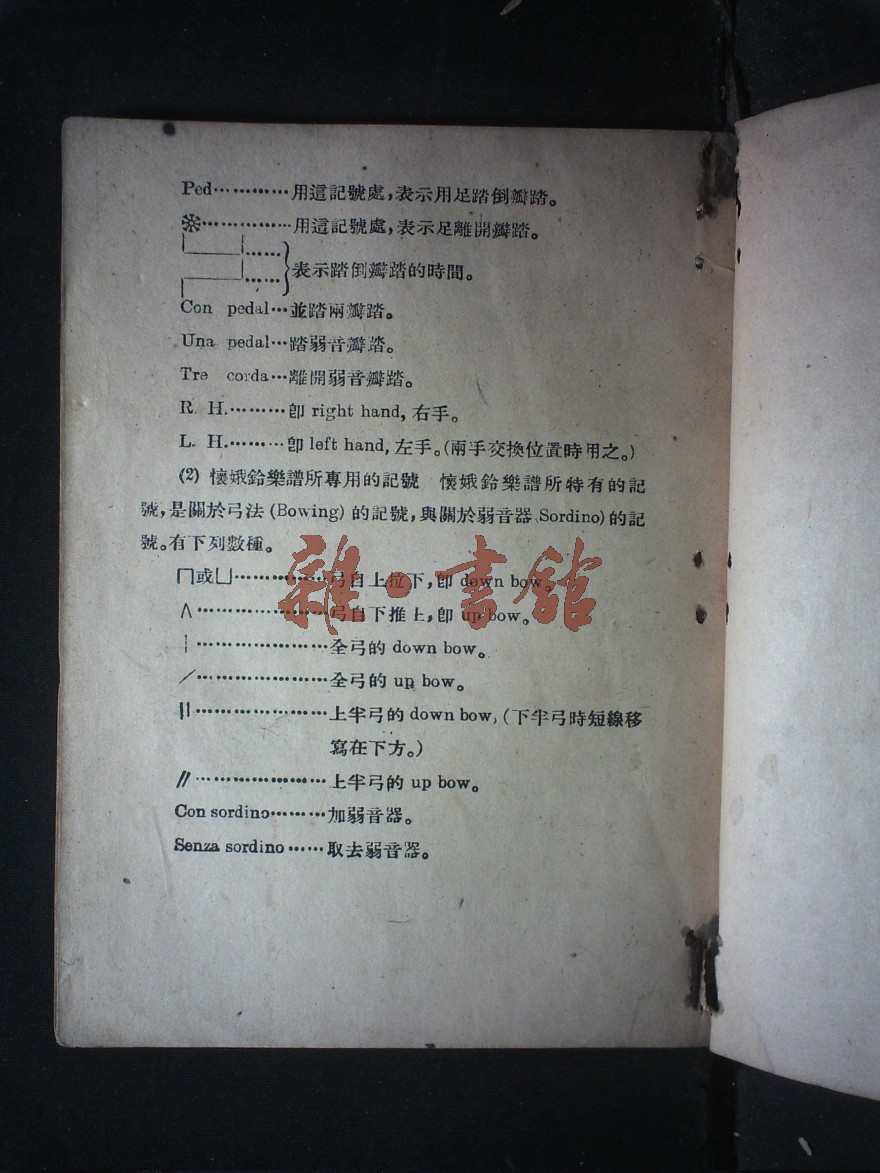 Ped…………用這記號處,表示用足踏倒瓣踏。
※……………用這記號處,表示足離開瓣踏。
表示踏倒瓣踏的時間。
Con pedal…並踏兩瓣踏。
Una pedal…踏弱音瓣踏。
Tre corda…離開弱音瓣踏。
R. H.………卽 right hand, 右手。
L. H.………卽 left hand, 左手。(兩手交換位置時用之。)
(2) 懷娥鈴樂譜所專用的記號 懷娥鈴樂譜所特有的記
號,是關於弓法 (Bowing) 的記號,與關於弱音器 Sordino) 的記
號。有下列數種。
⊓或⊔……………弓自上拉下,卽 down bow
∧…………………弓自下推上,卽 up bow。
¦…………………全弓的 down bow。
/…………………全弓的 up bow。
||…………………上半弓的 down bow, (下半弓時短線移
寫在下方。)
//…………………上半弓的 up bow。
Con sordino………加弱音器。
Senza sordino……取去弱音器。
雜·書館